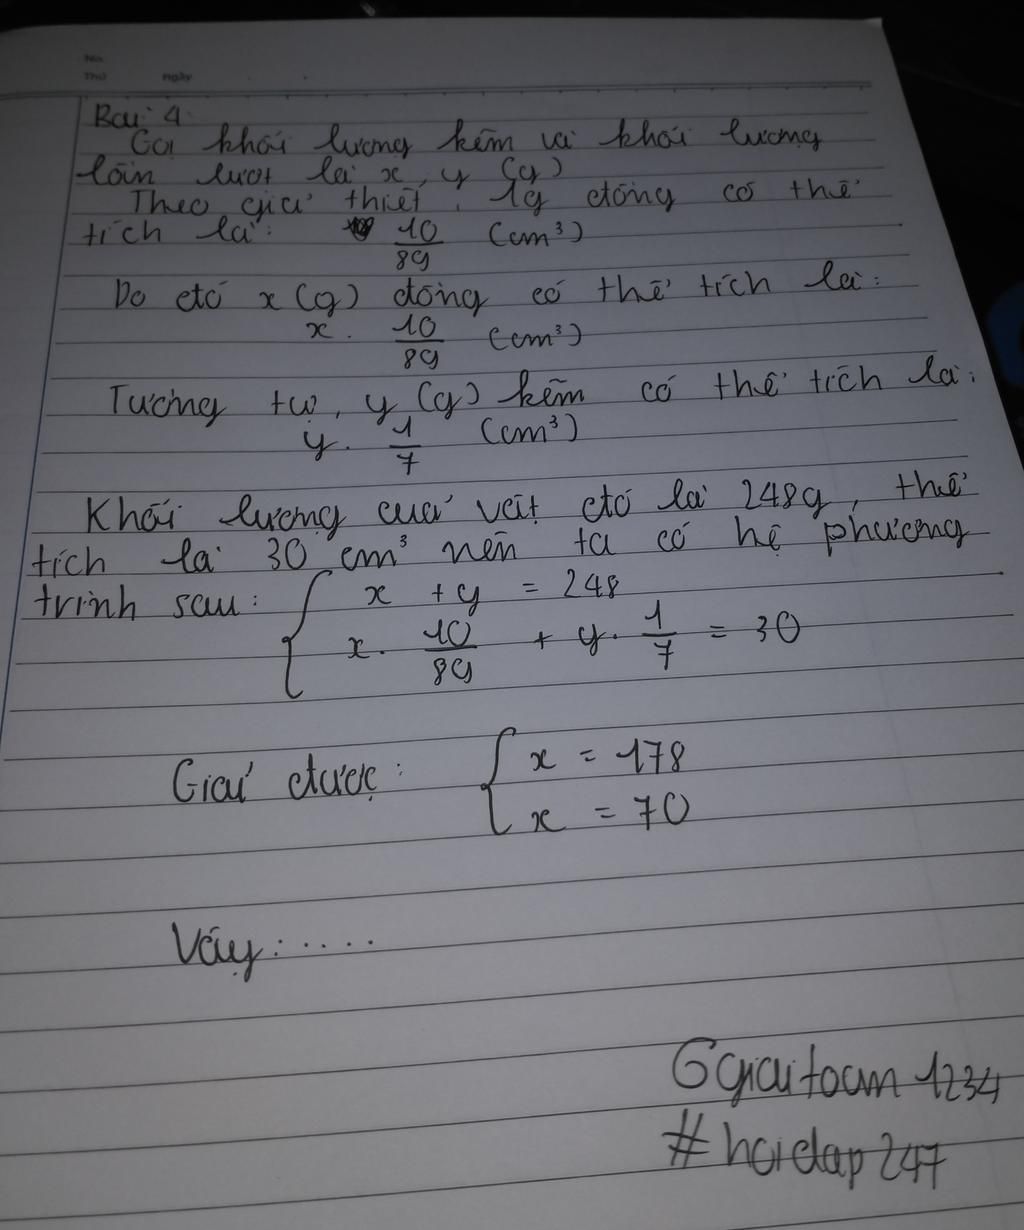 No.
Thứ Ngày
Bài 4
Gọi khối lượng kẽm và khối lượng
lần lượt là x, y (g)
Theo giả thiết, 1g đồng có thể
tích là: 10/89 (cm³)
Do đó x (g) đồng có thể tích là:
x. 10/89 (cm³)
Tương tự, y (g) kẽm có thể tích là:
y. 1/7 (cm³)
Khối lượng của vật đó là 248g, thể
tích là 30 cm³ nên ta có hệ phương
trình sau: { x + y = 248
x. 10/89 + y. 1/7 = 30
Giải được: { x = 178
x = 70
Vậy:....
Ggiaitoan1234
#hoidap247